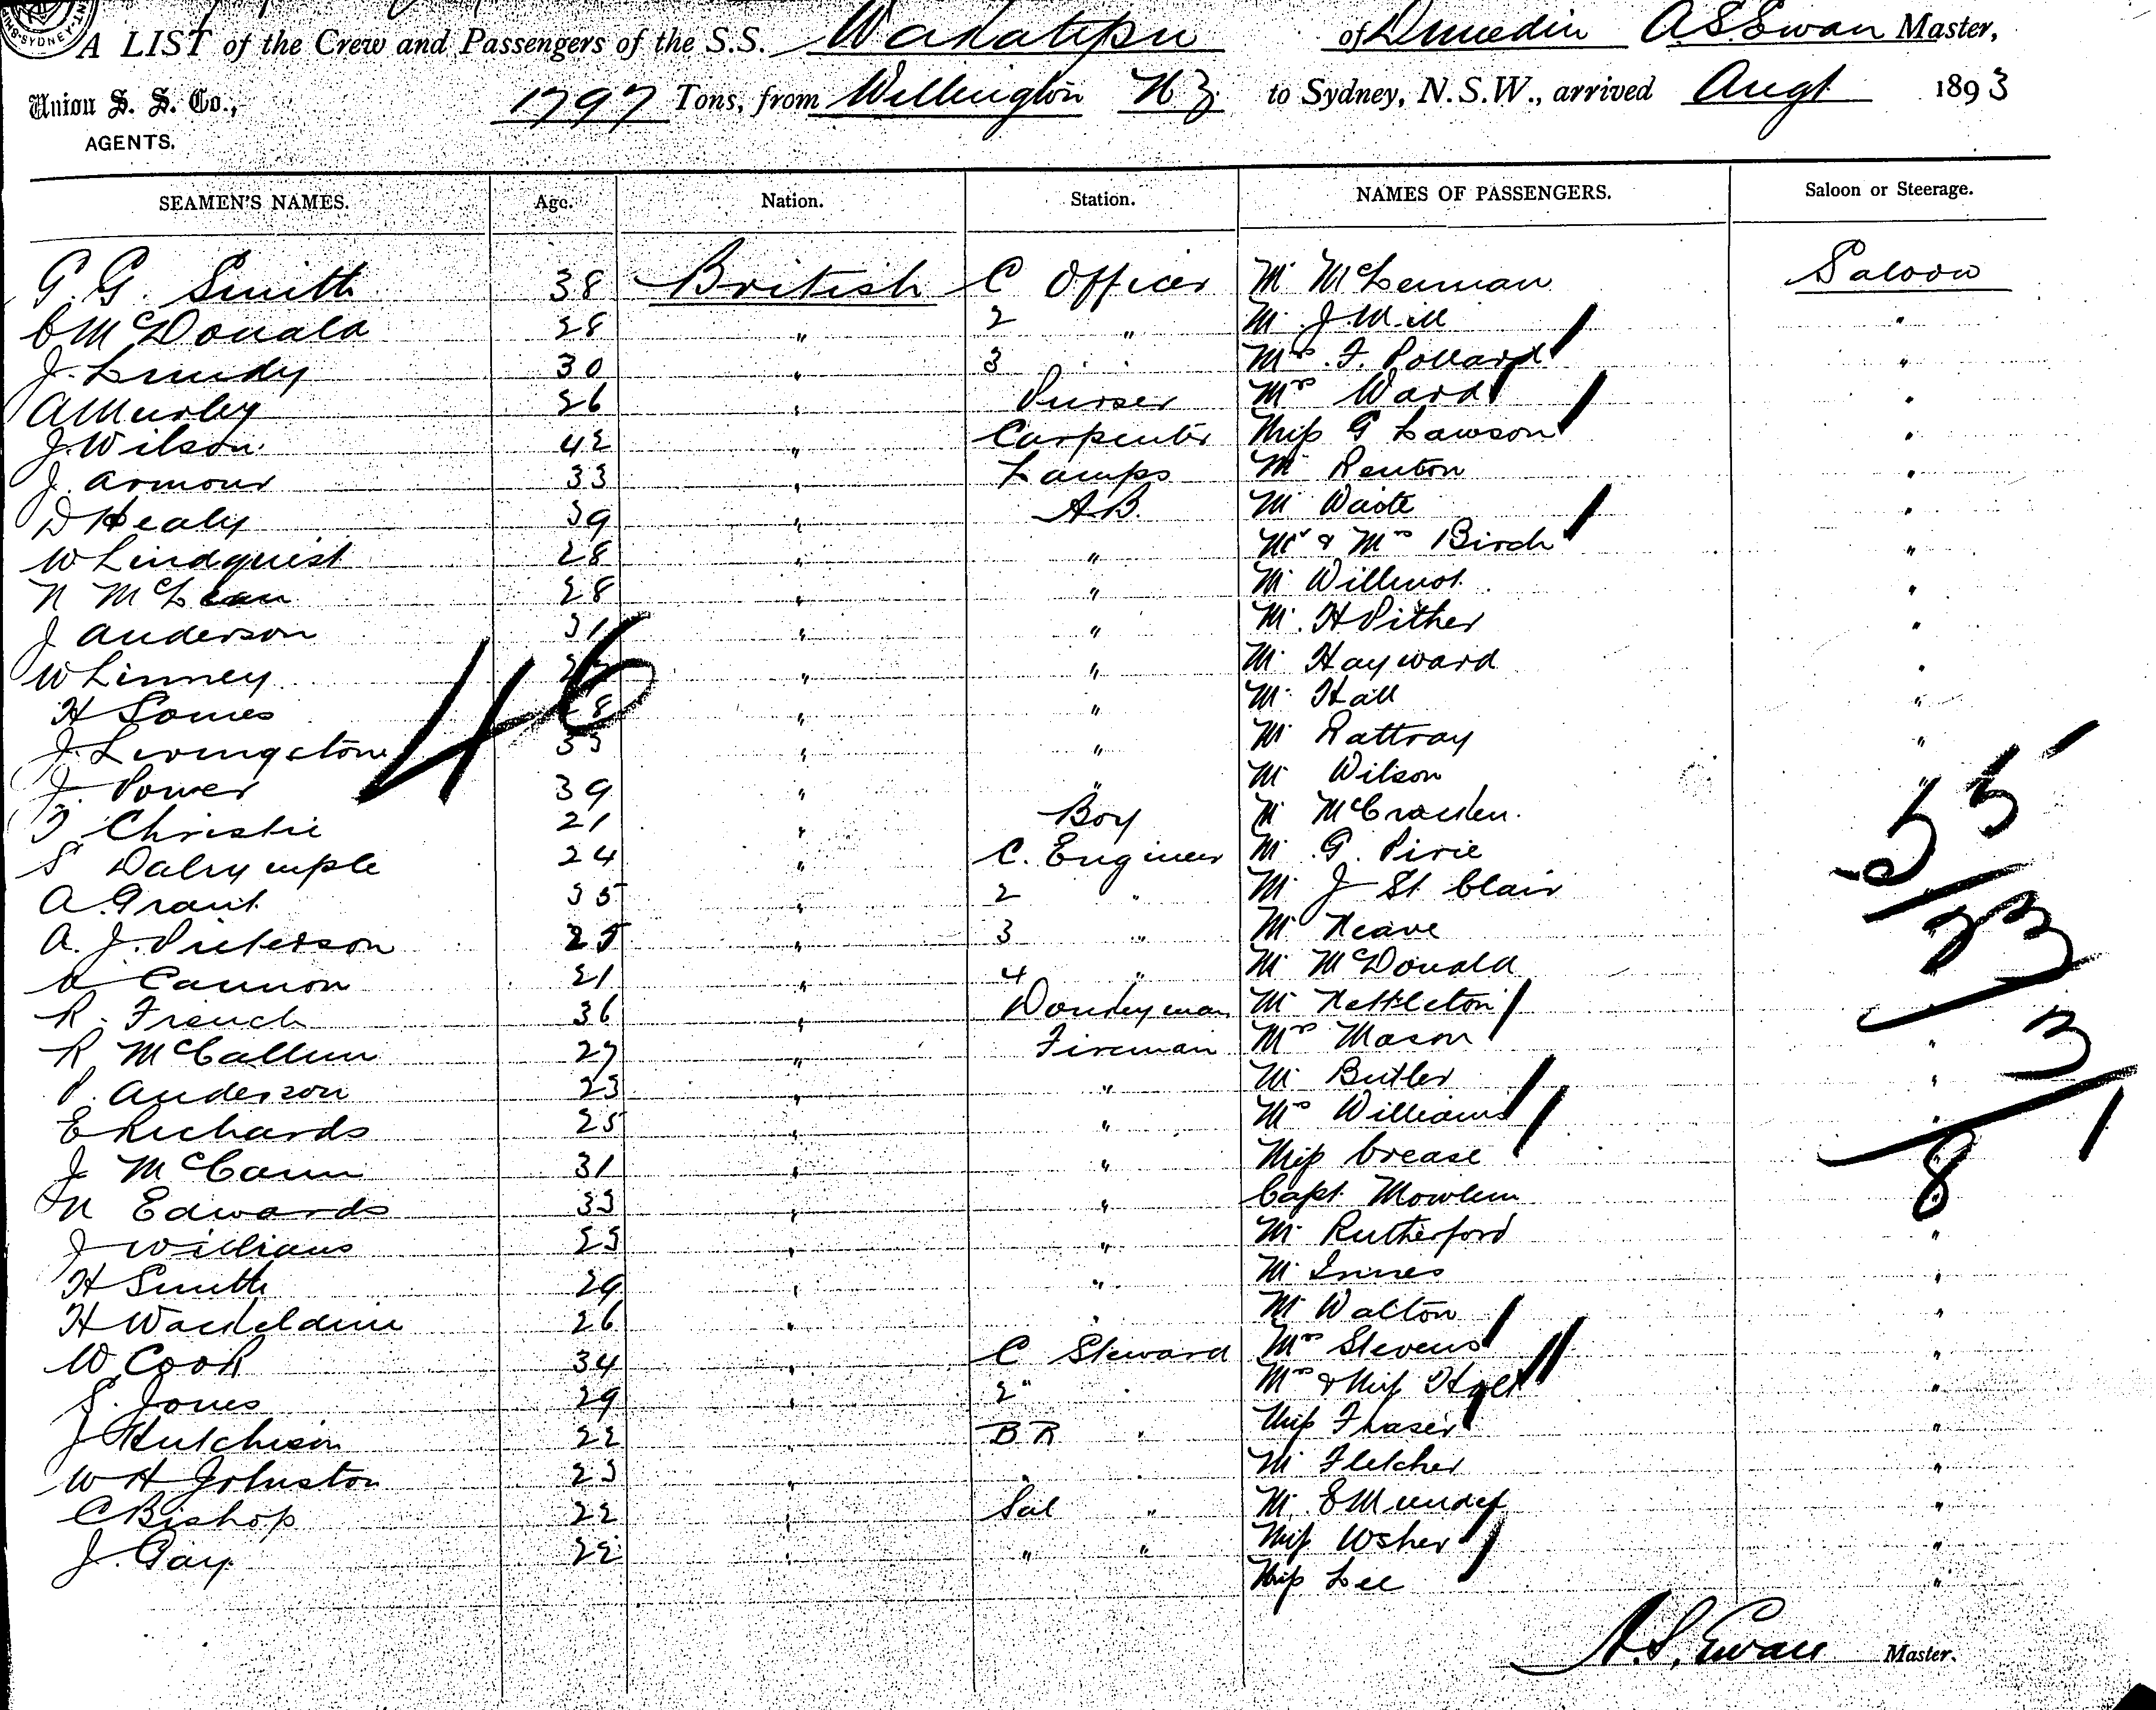 A LIST of the Crew and Passengers of the S.S. Wakatipu of Dunedin A.S. Ewan Master,
Union S. S. Co., AGENTS. 1797 Tons, from Wellington N Z to Sydney, N.S.W., arrived Augt 1893
SEAMEN'S NAMES. Age. Nation. Station. NAMES OF PASSENGERS. Saloon or Steerage.
G. G. Smith 38 British C Officer Mr McLennan Saloon
C McDonald 28 " 2 " Mr J. Mill "
J. Lundy 30 " 3 " Mrs F. Pollard "
A Murley 26 " Purser Mrs Ward "
J. Wilson 42 " Carpenter Miss G Lawson "
J. Armour 33 " Lamps Mr Renton "
D Healy 39 " A.B. Mr Waite "
W Lindquist 28 " " Mr & Mrs Birch "
N McLean 28 " " Mr Willmot "
J Anderson 31 " " Mr H Pither "
W Linney " " Mr Hayward "
H Somes 28 " " Mr Hall "
J. Livingstone 33 " " Mr Rattray "
J. Power 39 " " Mr Wilson "
Christie 21 " Boy Mr McCracken "
S Dalrymple 24 " C. Engineer Mr G. Pirie
A. Grant 35 " 2 " Mr J St Clair
A. J. Pieterson 25 " 3 " Mr Neave
A Cannon 21 " 4 " Mr McDonald "
R. French 36 " Donkeyman Mr Nettleton "
R McCallum 27 " Fireman Mrs Mason "
P. Anderson 23 " " Mr Butler "
E Richards 25 " " Mrs Williams "
J McCann 31 " " Miss Crease "
N Edwards 33 " " Capt. Mowlem "
J Williams 23 " " Mr Rutherford "
H Smith 29 " " Mr Innes "
H 26 " " Mr Walton "
W Cook 34 " C Steward Mrs Stevens "
S. Jones 29 " 2 " Mrs & Miss "
J Hutchison 22 " B R " Miss Fraser "
W H Johnston 23 " " " Mr Fletcher "
C Bishop 22 " Sal " Mr E "
J. Gay 22 " " " Miss Usher "
Miss Lee "
46
8
A.S. Ewan Master.